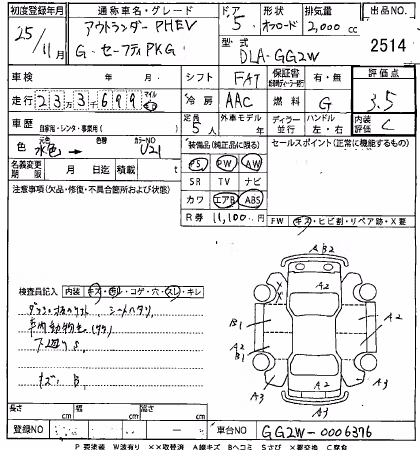 初度登録年月 通称車名・グレード ドア 形状 排気量 出品NO
25/11月 アウトランダー PHEV 5 オフロード 2,000 cc
G・セーフティPKG 型式 DLA-GG2W 2514
車検 年 月 シフト FAT 保証書 有・無 評価点
走行 マイル 冷房 AAC 燃料 G 3.5
車歴 自家用・レンタ・事業用( ) 定員 5人 外車モデル 年 ディーラー 並行 ハンドル 左・右 内装評価 C
色 元色 水色 → 色替 カラーNO U21 装備品(純正品に限る) セールスポイント(正常に機能するもの)
PS PW AW
名義変更期限 月 日 積載 t SR TV ナビ
注意事項(欠品・修復・不具合箇所および状態) カワ エアB ABS
R券 11,100円 FW キズ・ヒビ割・リペア跡・X要
AB2
検査員記入 内装 キズ・コゲ・穴・スレ・キレ
A2
B1
A2
A2
B1
A2
下廻りS
A2
A3
A3
A3
長さ cm 幅 cm 高さ cm
登録NO 車台NO GG2W-0006376
P要塗装 W波有り XX取替済 A線キズ Bヘコミ Sサビ X要交換 C腐食